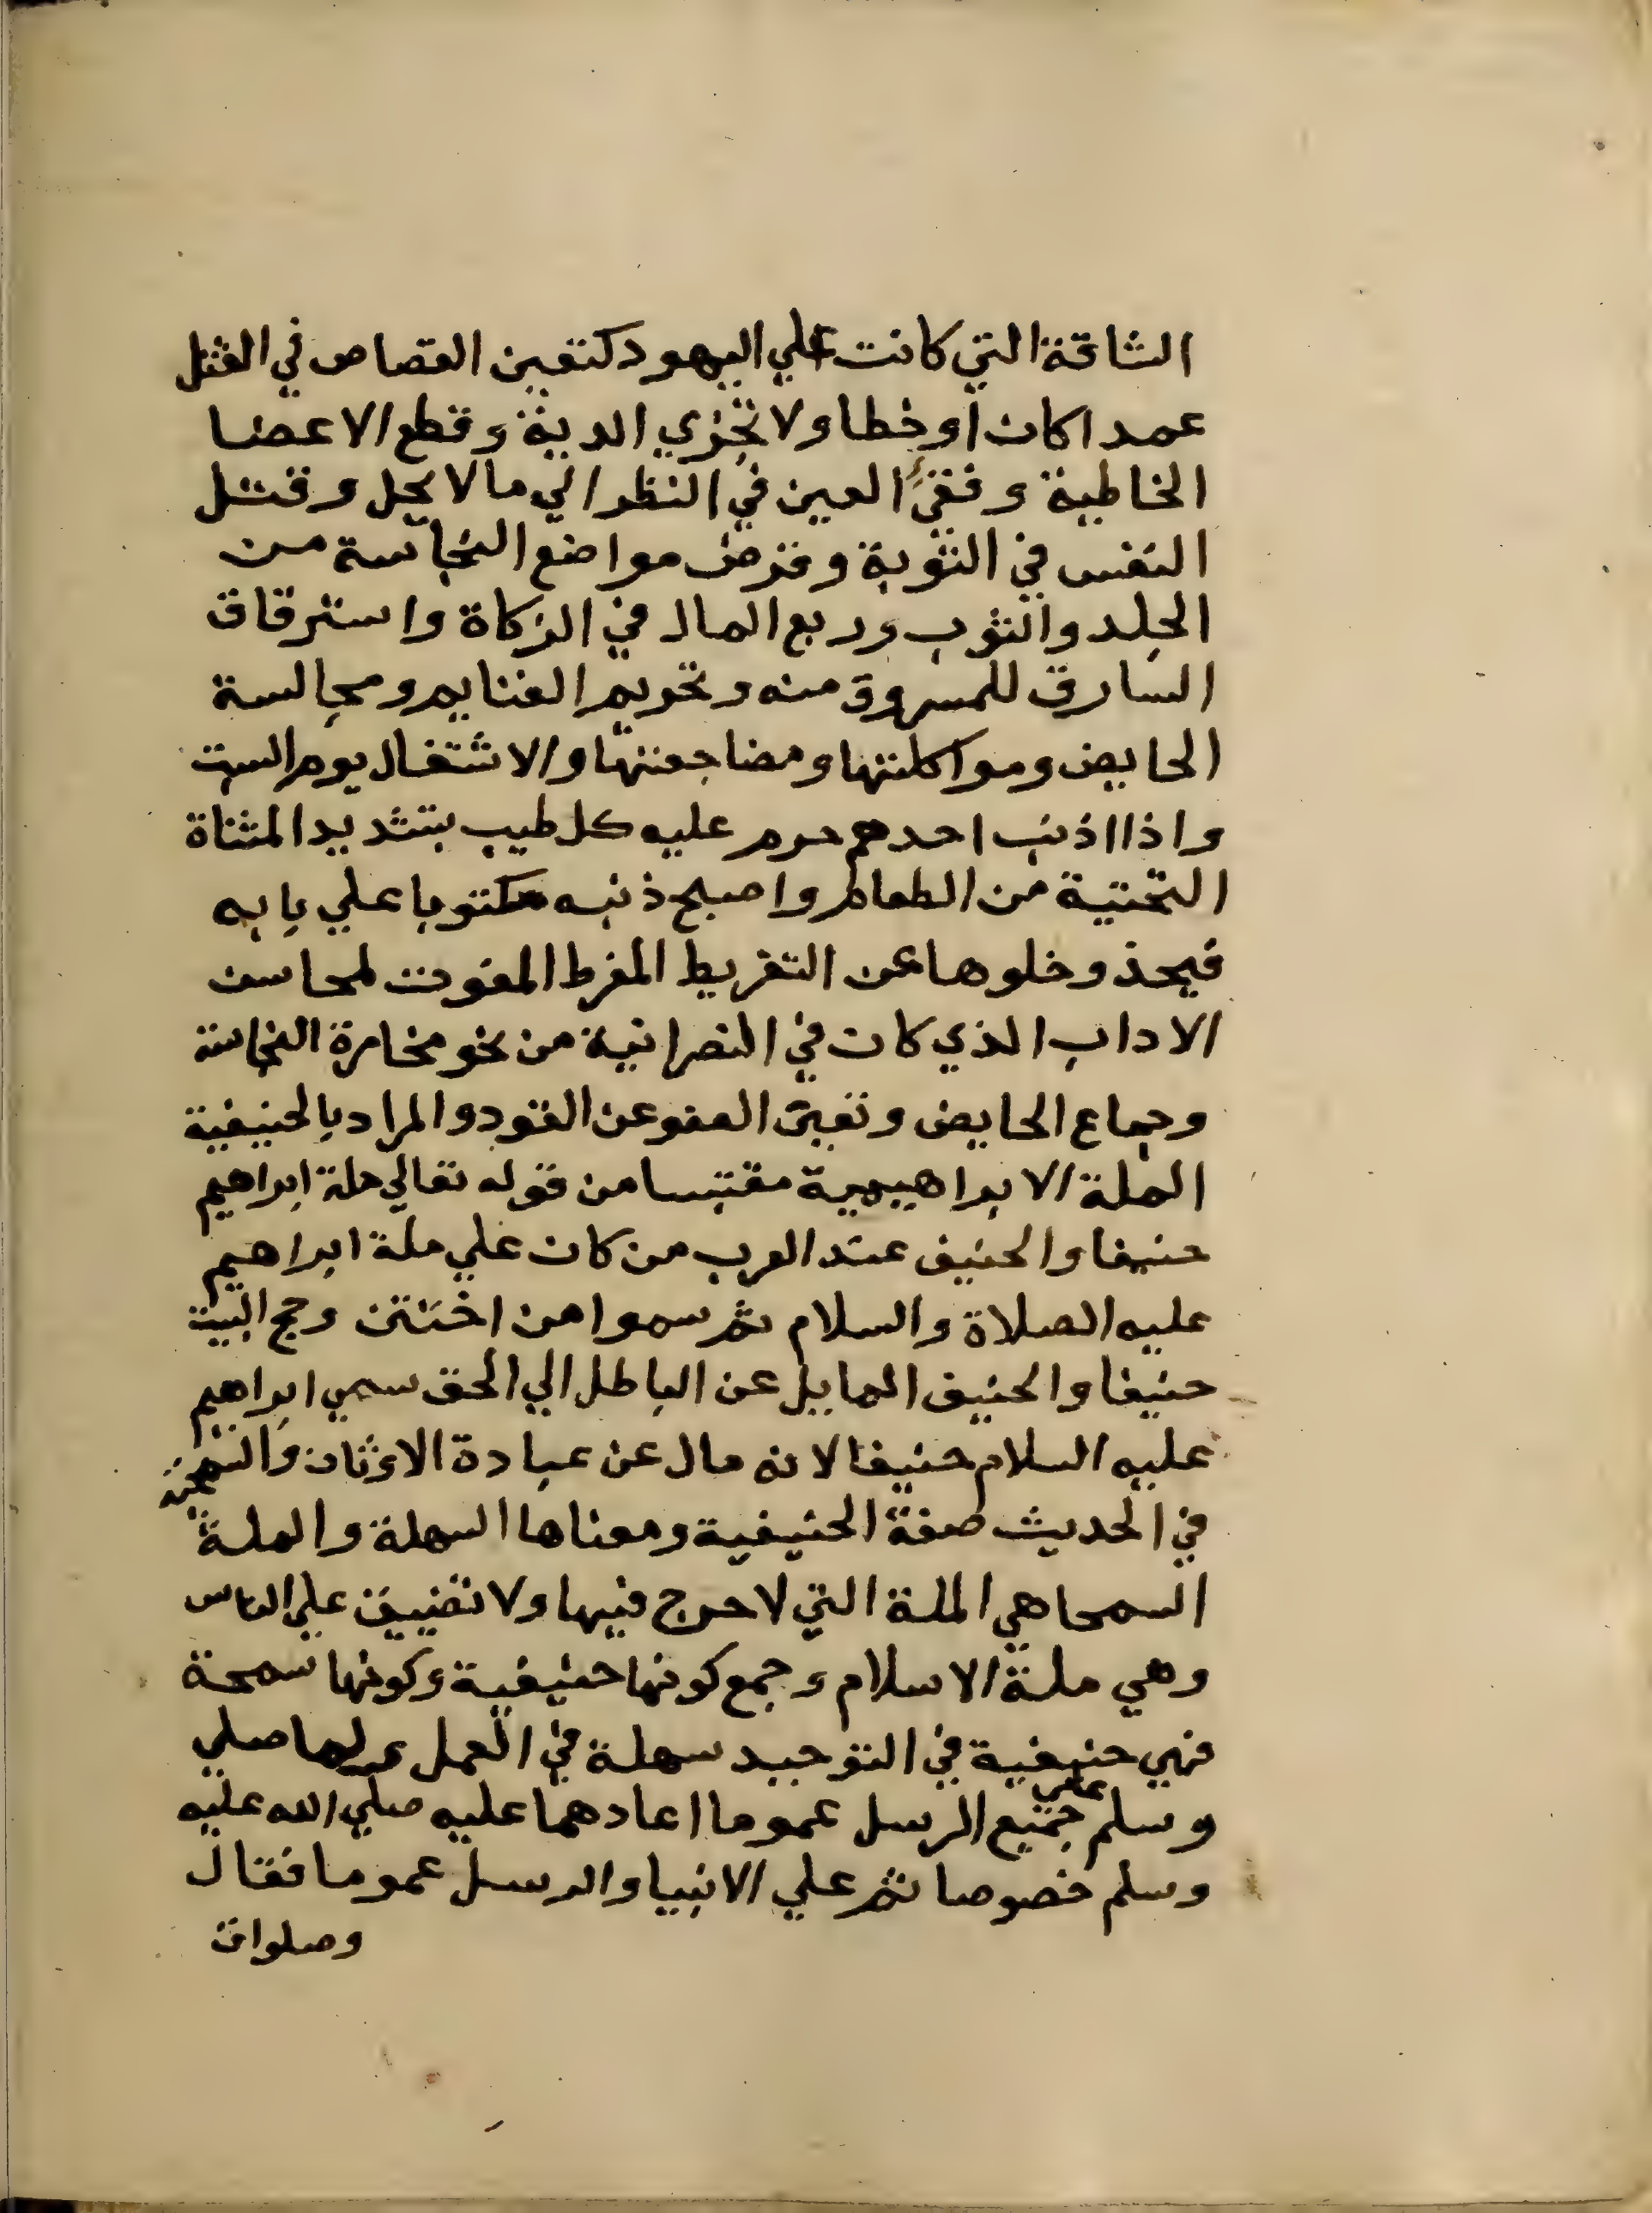 الشاقة التي كانت علي اليهود كتعين القصاص في القتل
عمدا كان او خطا ولا تجزي الدية وقطع الاعضا
الخاطية وفقئ العين في النظر الي ما لا يحل وقتل
النفس في التوبة وقرض مواضع النجاسة من
الجلد والثوب وربع المال في الزكاة واسترقاق
السارق للمسروق منه وتحريم الغنايم ومجالسة
الحايض ومواكلتها ومضاجعتها والاشتغال يوم السبت
واذا اذنب احدهم حرم عليه كل طيب بتشديد المثناة
التحتية من الطعام واصبح ذنبه مكتوبا علي بابه
فيحد وخلوها عن التفريط المفرط المفوت لمحاسن
الاداب الذي كان في النصرانية من نحو مخامرة النجاسة
وجماع الحايض وتعين العفو عن القود والمراد بالحنيفية
الملة الابراهيمية مقتبسا من قوله تعالي ملة ابراهيم
حنيفا والحنيف عند العرب من كان علي ملة ابراهيم
عليه الصلاة والسلام ثم سموا من اختتن وحج البيت
حنيفا والحنيف المايل عن الباطل الي الحق سمي ابراهيم
عليه السلام حنيفا لانه مال عن عبادة الاوثان والسمحة
في الحديث صفة الحنيفية ومعناها السهلة والملة
السمحا هي الملة التي لا حرج فيها ولا تضييق علي الناس
وهي ملة الاسلام وجمع كونها حنيفية وكونها سمحة
فهي حنيفية في التوحيد سهلة في العمل ولما صلي
وسلم علي جميع الرسل عموما اعادهما عليه صلي الله عليه
وسلم خصوصا ثم علي الانبيا والرسل عموما فقال
وصلوات